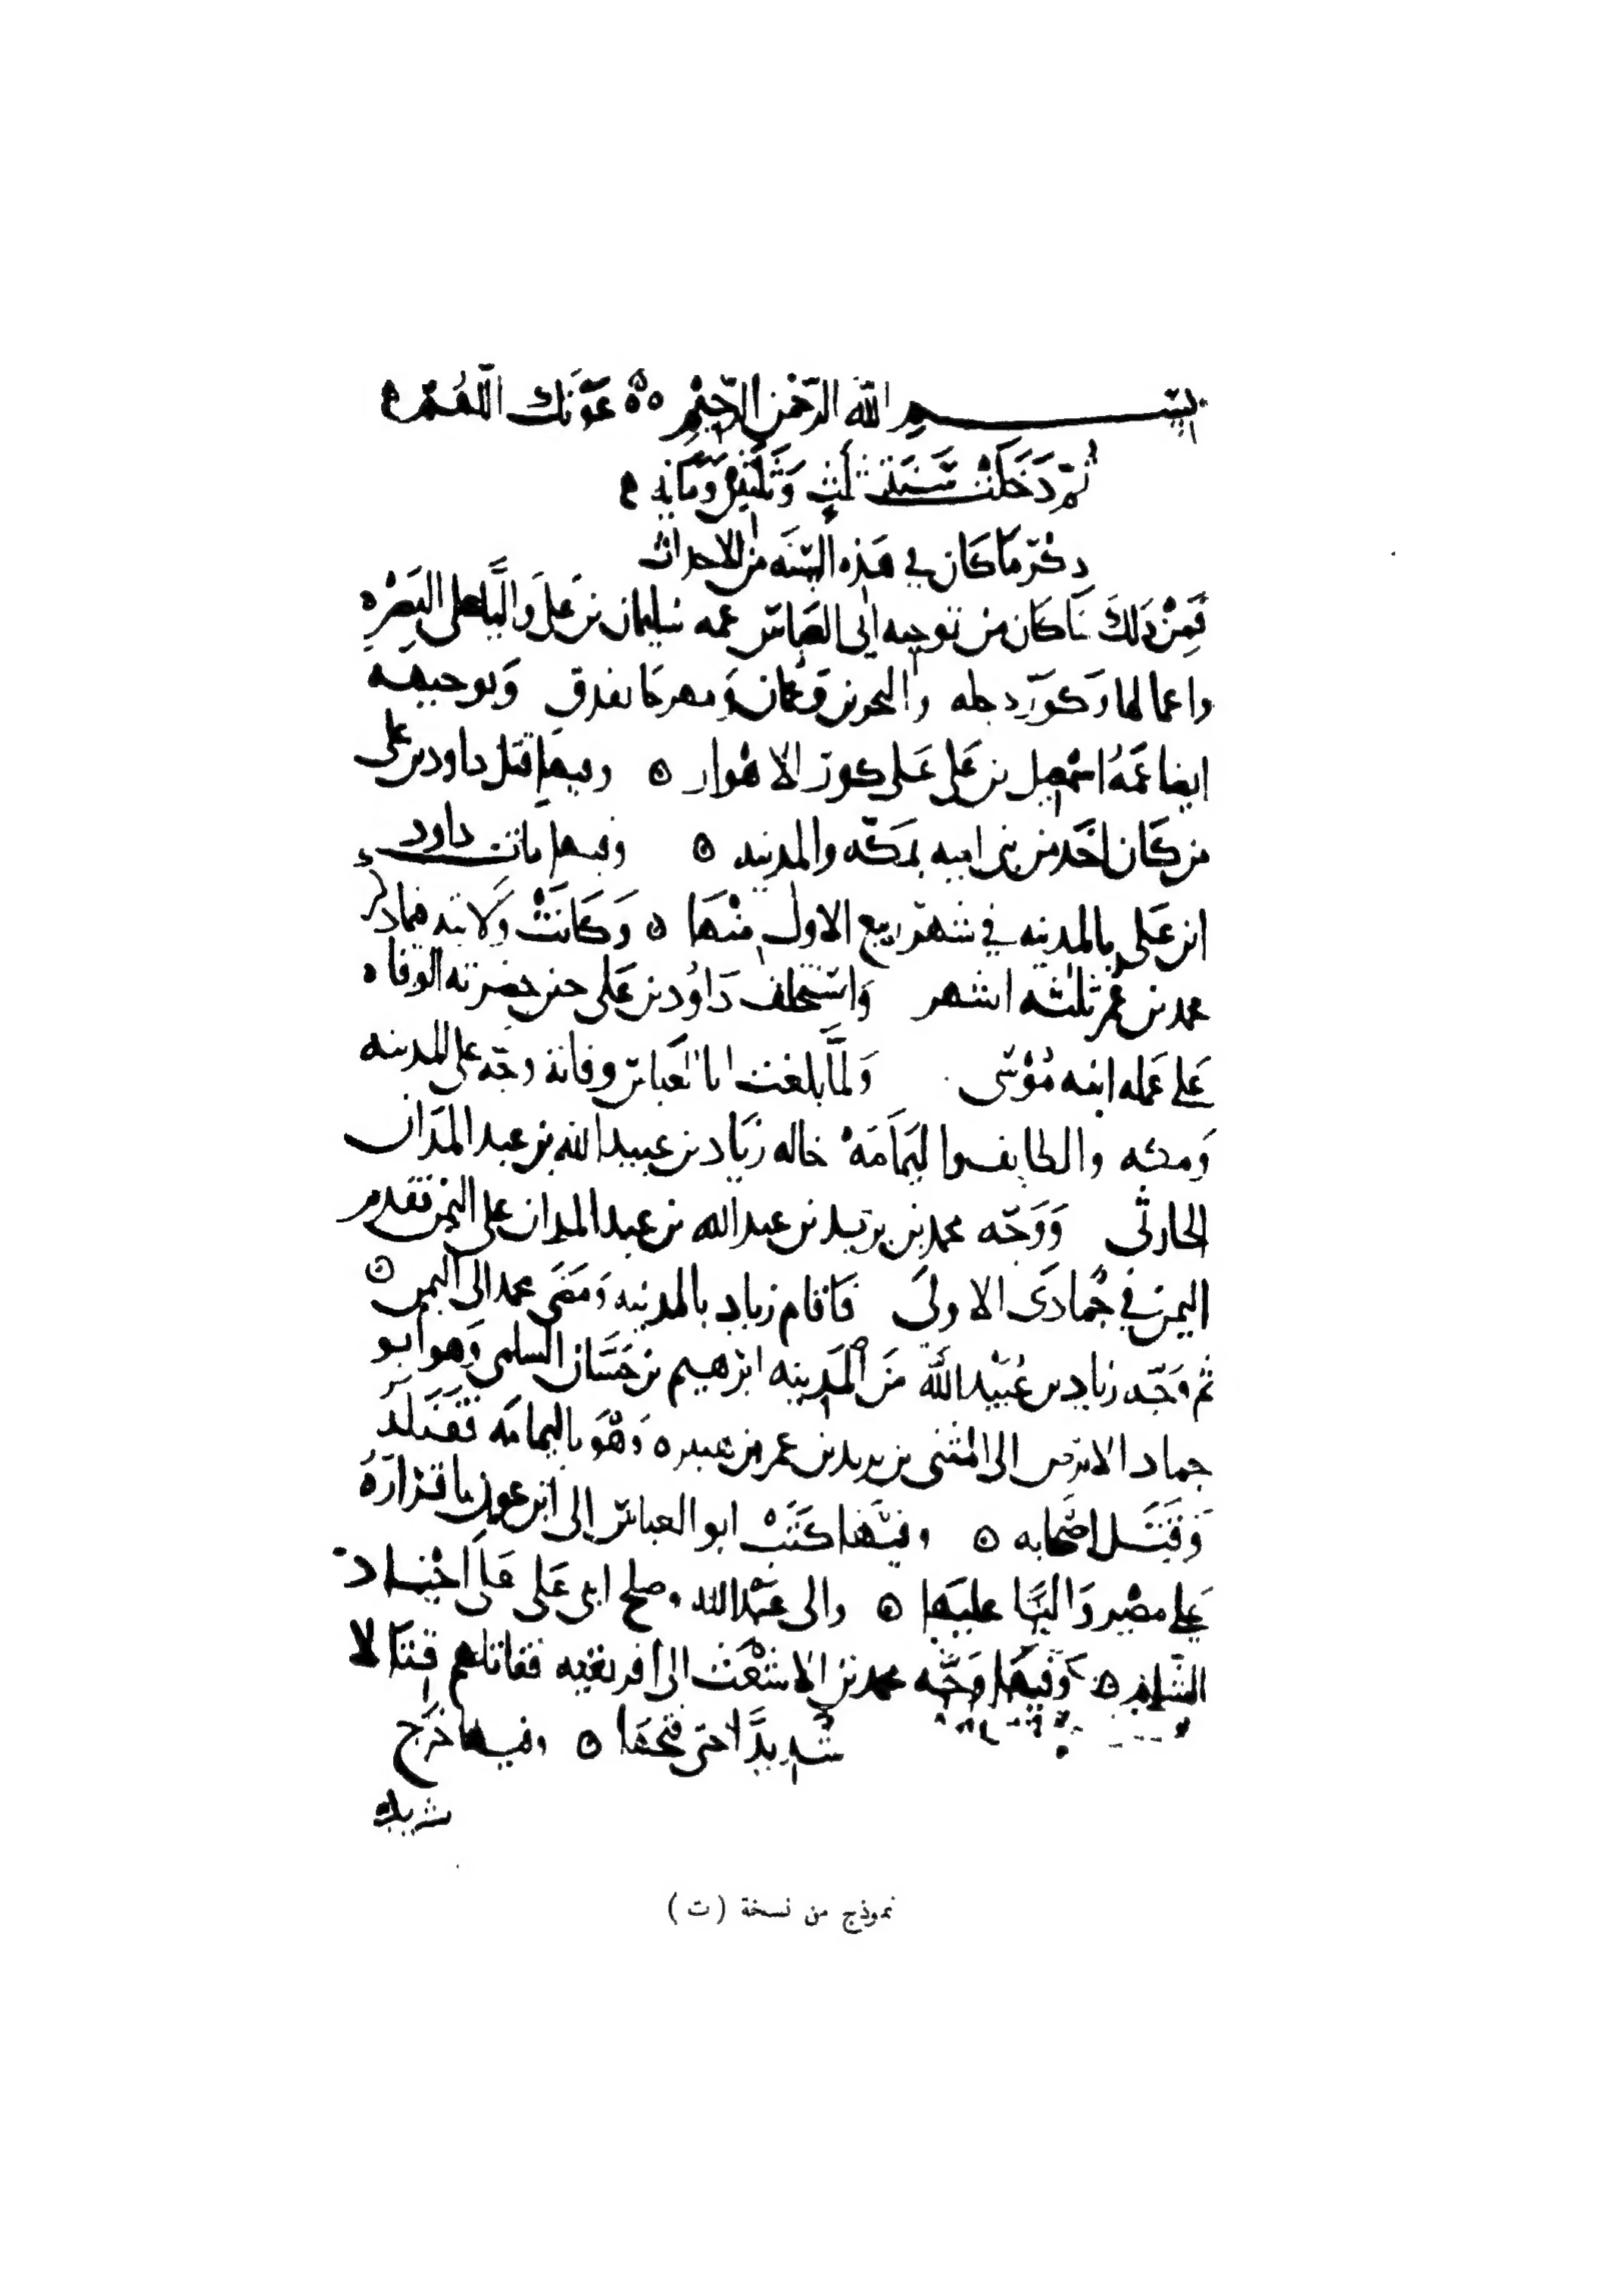 بسم الله الرحمن الرحيم ٥ ٥ عونك اللهم
ثم دخلت سنة ثلث وثلثين ومائة
ذكر ما كان في هذه السنه من الاحداث
فمن ذلك ما كان من توجيه ابى العباس عمه سليمان بن على واليا على البصره
واعمالها وكور دجله والبحرين وعمان ومهرجانقذق وتوجيهه
ايضا عمه اسمعيل بن على على كور الاهواز ٥ وفيها قتل داود بن على
من كان اخذ من بنى اميه بمكه والمدينه ٥ وفيها مات داود
ابن على بالمدينه في شهر ربيع الاول منها ٥ وكانت ولايته فيما ذكر
محمد بن عمر ثلثه اشهر واستخلف داود بن على حين حضرته الوفاه
على عمله ابنه موسى ولما بلغت ابا العباس وفاته وجه على المدينه
ومكه والطايف واليمامه خاله زياد بن عبيد الله بن عبد المدان
الحارثى ووجه محمد بن يزيد بن عبد الله بن عبد المدان على اليمن فقدم
اليمن في جمادى الاولى فاقام زياد بالمدينه ومضى محمد الى اليمن ٥
ثم وجه زياد بن عبيد الله من المدينه ابرهيم بن حسان السلمى وهو ابو
حماد الابرص الى المثنى بن يزيد بن عمر بن هبيره وهو باليمامه فقتله
وقتل اصحابه ٥ وفيها كتب ابو العباس الى ابى عون باقراره
على مصر واليا عليها ٥ والى عبد الله وصلح ابنى على على اجناد
الشام ٥ وفيها وجه محمد بن الاشعث الى افريقيه فقاتلهم قتالا
شديدا حتى فتحها ٥ وفيها خرج
شريك
نموذج من نسخة (ت)